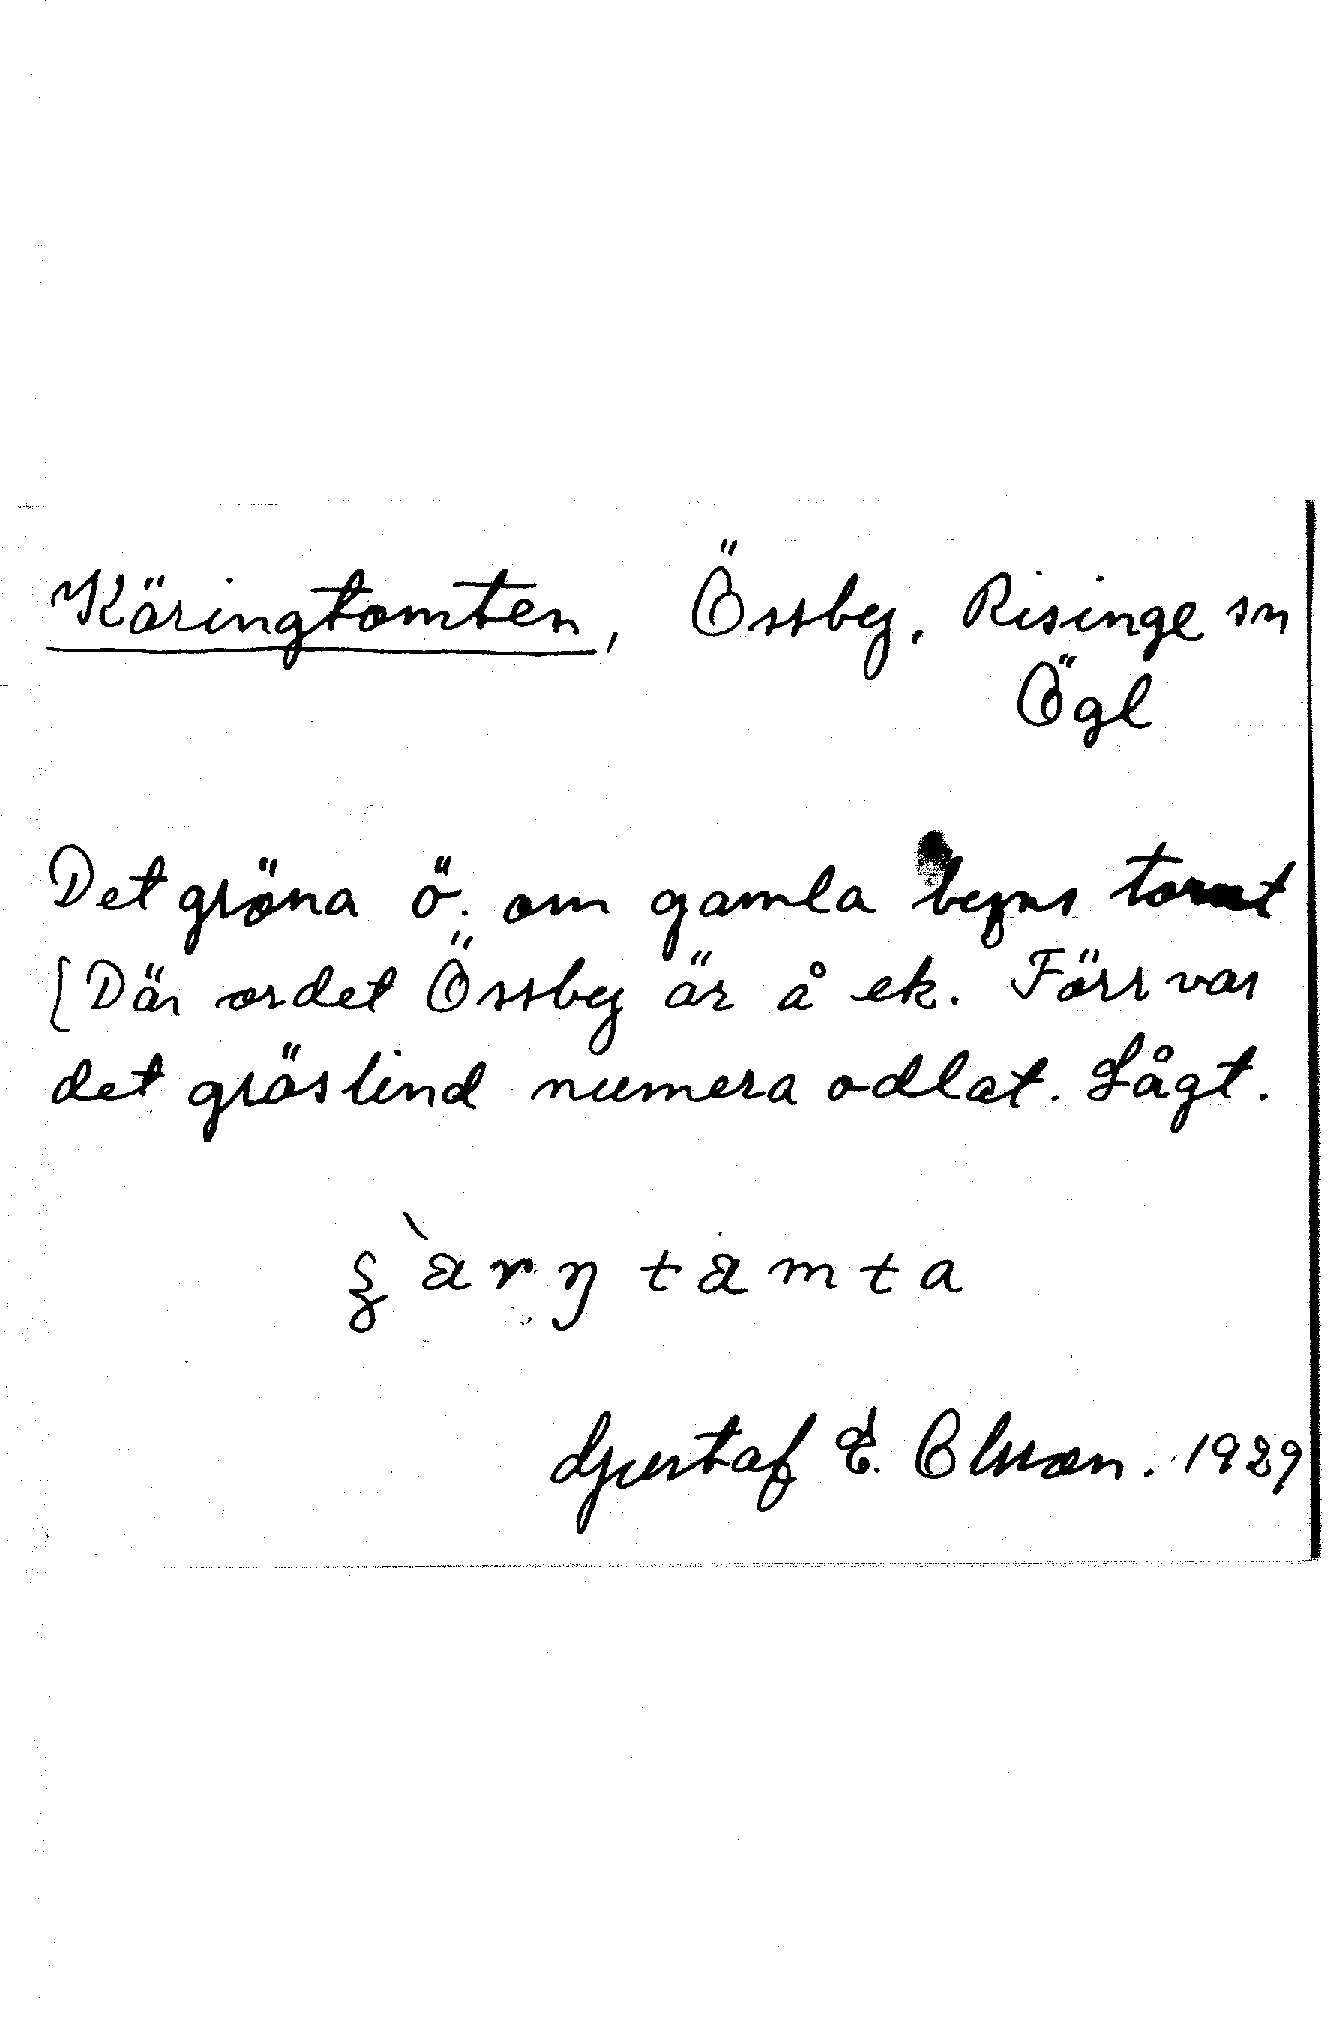 Käringtomten, Össby, Risinge sn
Ögl
Det gröna ö. om gamla byns tomt
[Där ordet Össby är å ek. Förr var
det gräslind numera odlat. Lågt.
Gustaf E. Olsson. 1929